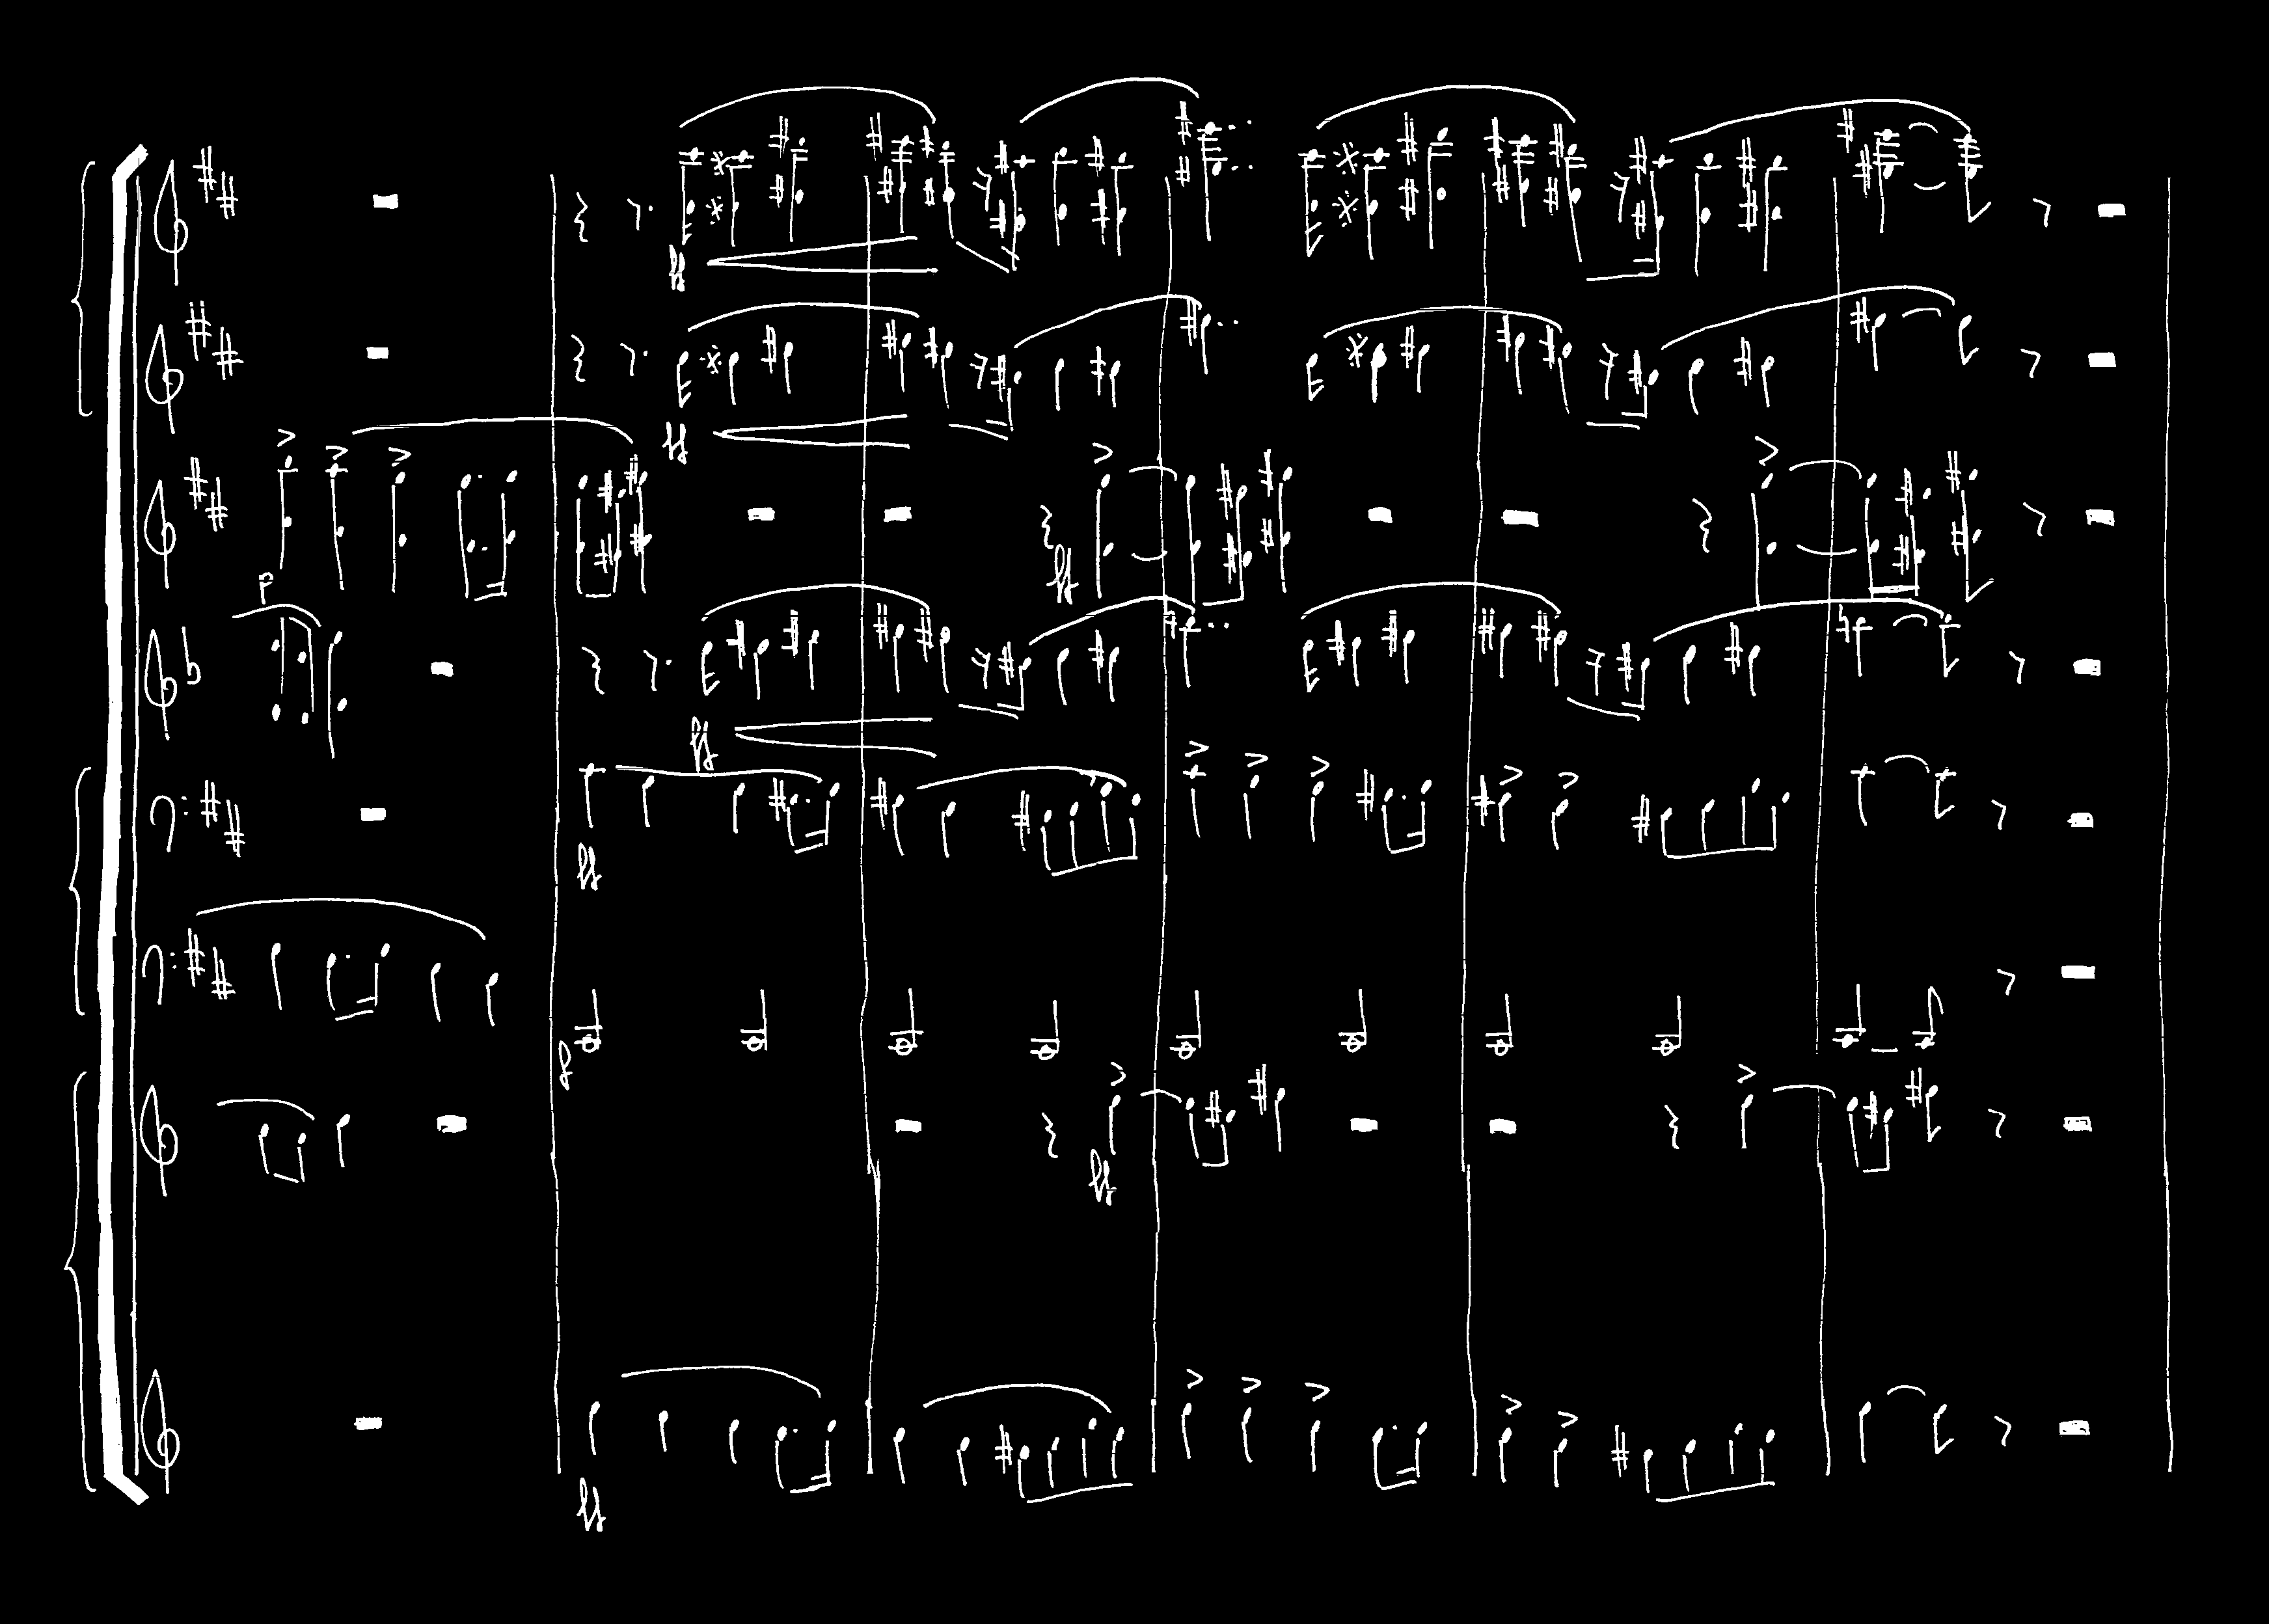 ff
ff
p
ff
ff
ff
ff
ff